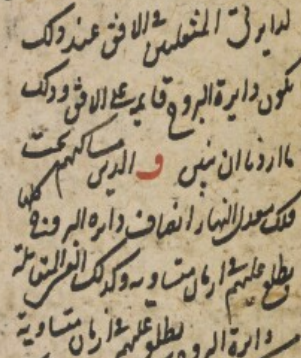 لدايرتى المنقلبين فى الافق عند ذلك
تكون دايرة البروج قايمه على الافق وذلك
ما اردنا ان نبين و الذين مساكنهم تحت
فلك معدل النهار انصاف دايره البروج كلها
يطلع عليهم فى ازمان متساويه وكذلك القسى المتقابلة
دايرة البروج يطلع عليهم فى ازمان متساوية